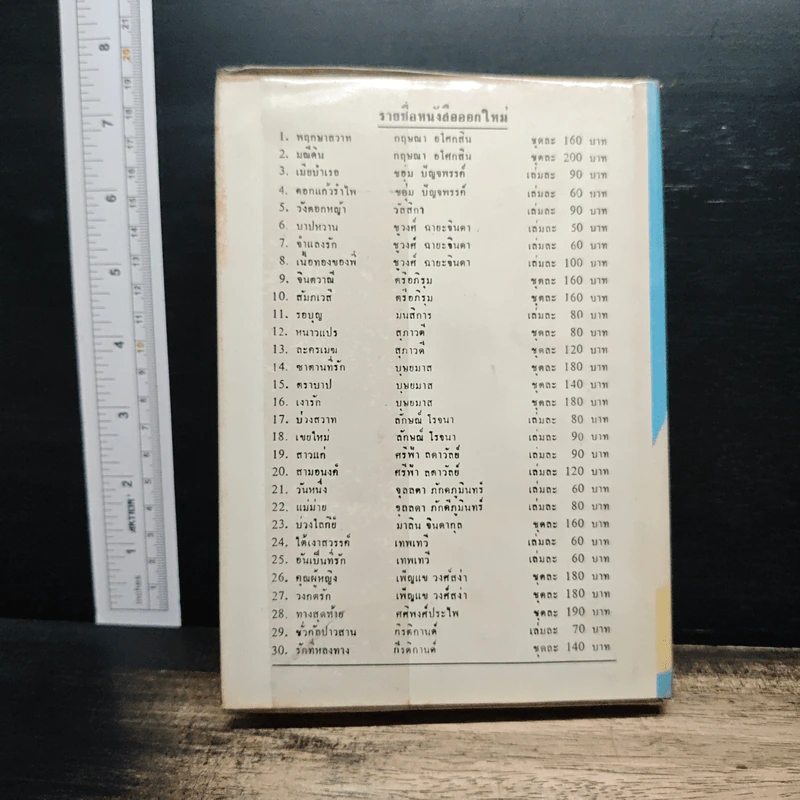 รายชื่อหนังสือออกใหม่
1. พฤกษาสวาท กฤษณา อโศกสิน ชุดละ 160 บาท
2. มณีดิน กฤษณา อโศกสิน ชุดละ 200 บาท
3. เมียบำเรอ ชอุ่ม ปัญจพรรค์ เล่มละ 90 บาท
4. ดอกแก้วรำไพ ชอุ่ม ปัญจพรรค์ เล่มละ 60 บาท
5. วังดอกหญ้า วัสสิกา เล่มละ 90 บาท
6. บาปหวาน ชูวงศ์ ฉายะจินดา เล่มละ 50 บาท
7. จำแลงรัก ชูวงศ์ ฉายะจินดา เล่มละ 60 บาท
8. เนื้อทองของพี่ ชูวงศ์ ฉายะจินดา เล่มละ 100 บาท
9. จินตวาณี ตรีอภิรุม ชุดละ 160 บาท
10. สัมภเวสี ตรีอภิรุม ชุดละ 160 บาท
11. รอบุญ มนสิการ เล่มละ 80 บาท
12. หนาวแปร สุภาวดี ชุดละ 80 บาท
13. ละครเมฆ สุภาวดี ชุดละ 120 บาท
14. ซาตานที่รัก บุษยมาส ชุดละ 180 บาท
15. ตราบาป บุษยมาส ชุดละ 140 บาท
16. เงารัก บุษยมาส ชุดละ 180 บาท
17. บ่วงสวาท ลักษณ์ โรจนา เล่มละ 80 บาท
18. เขยใหม่ ลักษณ์ โรจนา เล่มละ 90 บาท
19. สาวแก่ ศรีฟ้า ลดาวัลย์ เล่มละ 90 บาท
20. สามอนงค์ ศรีฟ้า ลดาวัลย์ เล่มละ 120 บาท
21. วันหนึ่ง จุลลดา ภักดีภูมินทร์ เล่มละ 60 บาท
22. แม่ม่าย จุลลดา ภักดีภูมินทร์ เล่มละ 80 บาท
23. บ่วงโลกีย์ มาลิน จินดากุล ชุดละ 160 บาท
24. ใต้เงาสวรรค์ เทพเทวี เล่มละ 60 บาท
25. อันเป็นที่รัก เทพเทวี เล่มละ 60 บาท
26. คุณผู้หญิง เพ็ญแข วงศ์สง่า ชุดละ 180 บาท
27. วงกตรัก เพ็ญแข วงศ์สง่า ชุดละ 180 บาท
28. ทางสุดท้าย ศศิพงศ์ประไพ ชุดละ 190 บาท
29. ชั่วกัลปาวสาน กีรติกานต์ เล่มละ 70 บาท
30. รักที่หลงทาง กีรติกานต์ ชุดละ 140 บาท